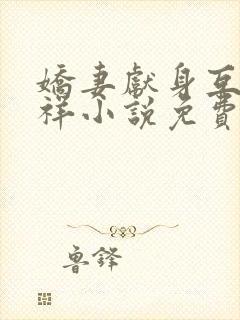 嬌妻獻身互
祥小說免費
魯鋒